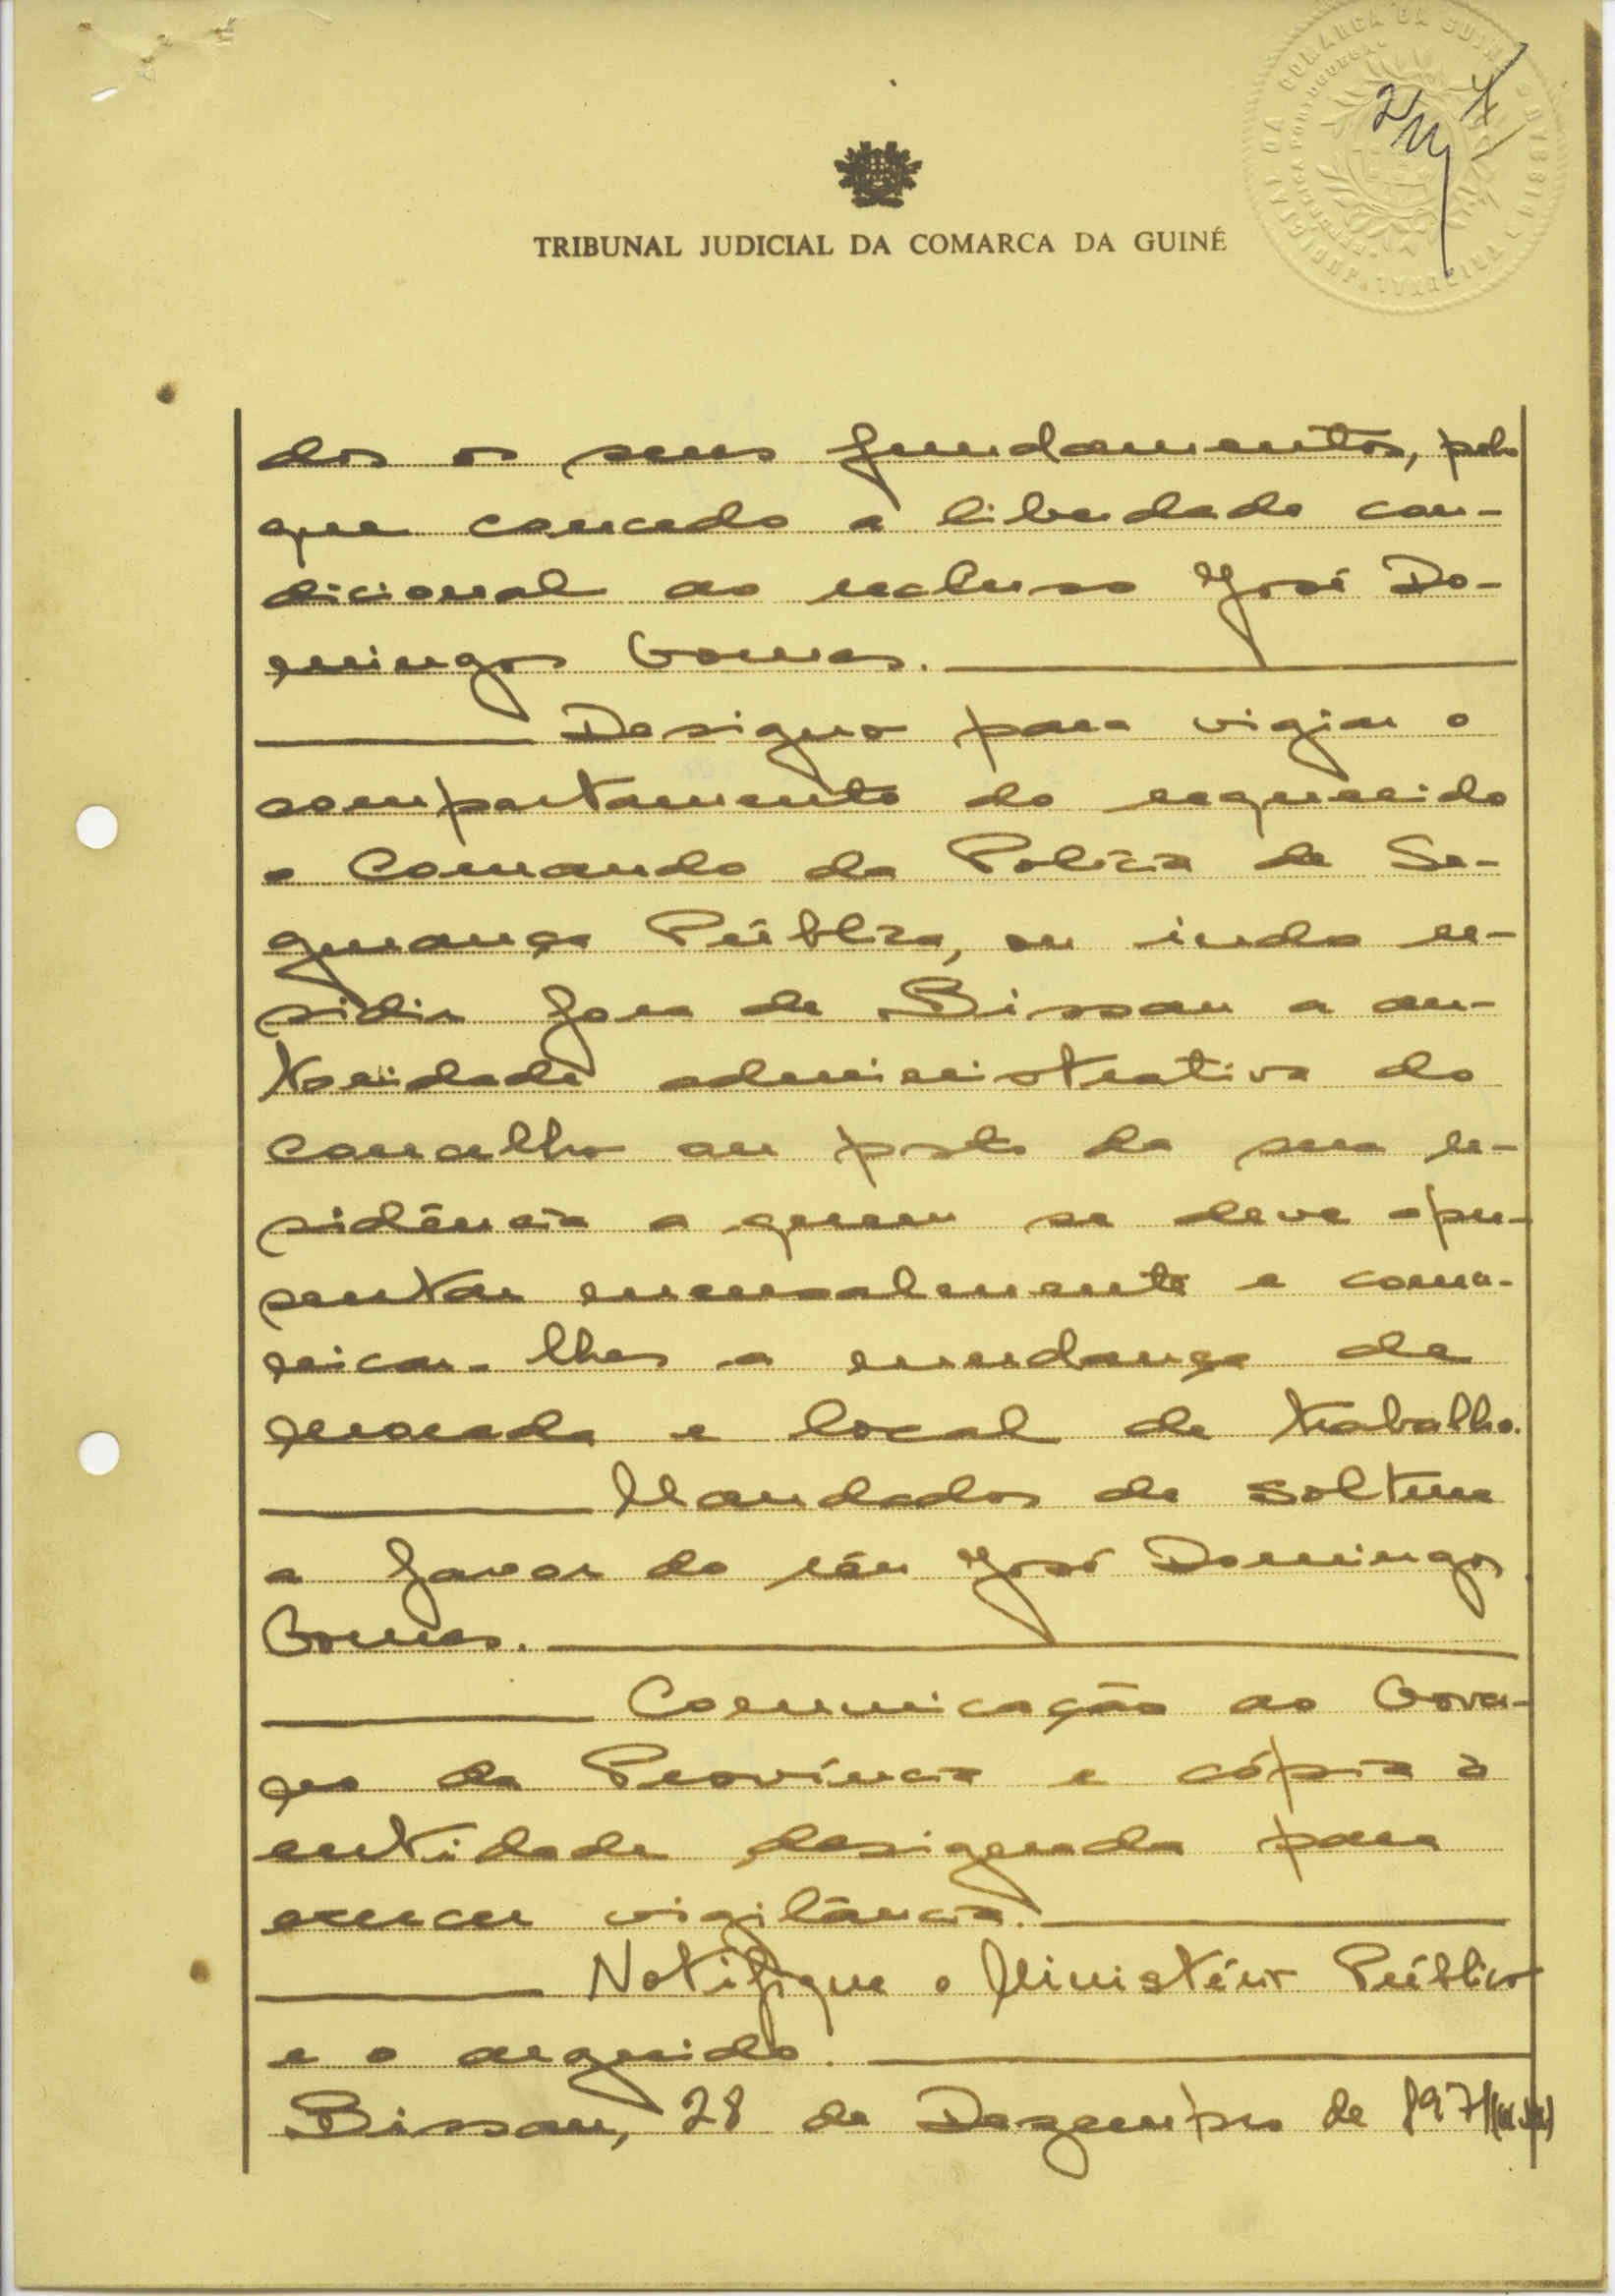 TRIBUNAL JUDICIAL DA COMARCA DA GUINÉ
dos os seus fundamentos, pelo
que concedo a liberdade con-
dicional ao recluso José Do-
mingos Gomes.
Designo para vigiar o
comportamento do requerido
o Comando da Polícia de Se-
gurança Pública, ou indo re-
sidir fora de Bissau a au-
toridade administrativa do
concelho ou posto da sua re-
sidência a quem se deve apre-
sentar mensalmente e comu-
nicar-lhes a mudança de
morada e local de trabalho.
Mandados de soltura
a favor do réu José Domingos
Gomes.
Comunicação ao Gover-
no da Província e cópia à
entidade designada para
exercer vigilância.
Notifique o Ministério Público
e o arguido.
Bissau, 28 de Dezembro de 1971